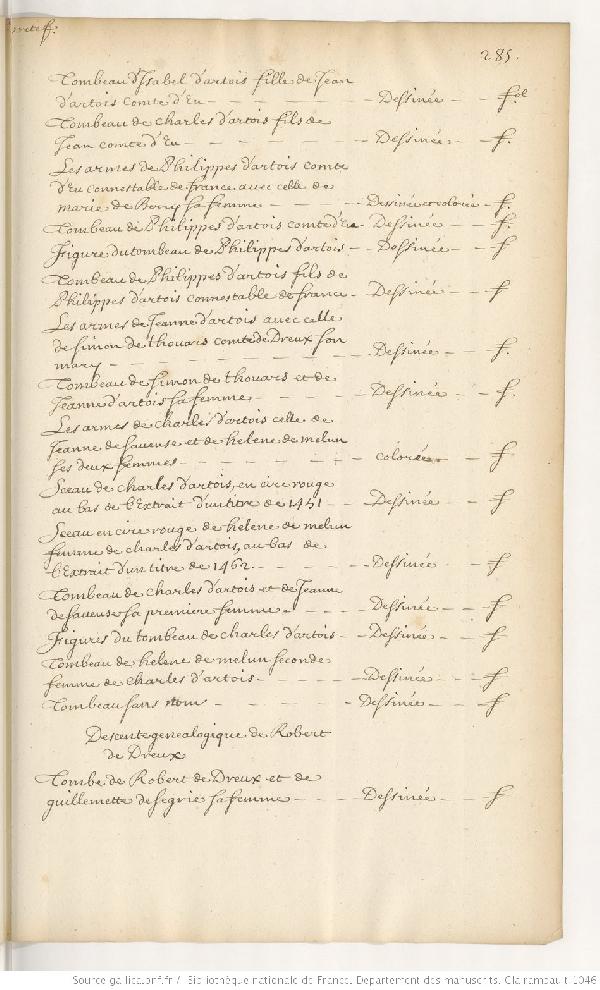 285.
Tombeau d'Isabel d'artois fille de Jean
d'artois comte d'Eu - - - - - - Dessinée - - f.ol
Tombeau de charles d'artois fils de
Jean comte d'Eu - - - - - - Dessinée - - f.
Les armes de Philippes d'artois comte
d'Eu connestable de france avec celle de
marie de Berry sa femme - - - - Dessinée et colorée - f.
Tombeau de Philippes d'artois comte d'Eu - Dessinée - - f.
Figure du tombeau de Philippes d'artois - - Dessinée - - f
Tombeau de Philippes d'artois fils de
Philippes d'artois connestable de france - - Dessinée - - f
Les armes de Jeanne d'artois avec celle
de simon de thouars comte de Dreux son
mary - - - - - - - - Dessinée - - f.
Tombeau de simon de thouars et de
Jeanne d'artois sa femme - - - - Dessinée - - f.
Les armes de charles d'artois celle de
Jeanne de saveuse et de helene de melun
ses deux femmes - - - - - - colorée - - f.
Sceau de charles d'artois, en cire rouge
au bas de l'Extrait d'un titre de 1451 - - Dessinée - - f
Sceau en cire rouge de helene de melun
femme de charles d'artois, au bas de
l'Extrait d'un titre de 1462. - - - - Dessinée - - f
Tombeau de charles d'artois et de Jeanne
de saveuse sa premiere femme - - - Dessinée - - f
Figures du tombeau de charles d'artois - - Dessinée - - f
Tombeau de helene de melun seconde
femme de charles d'artois - - - - Dessinée - - f
Tombeau sans nom - - - - - Dessinée - - f
Descente genealogique de Robert
de Dreux
Tombe de Robert de Dreux et de
guillemette de segrie sa femme - - - Dessinée - - f
Source gallica.bnf.fr / Bibliothèque nationale de France. Département des manuscrits. Clairambault 1046